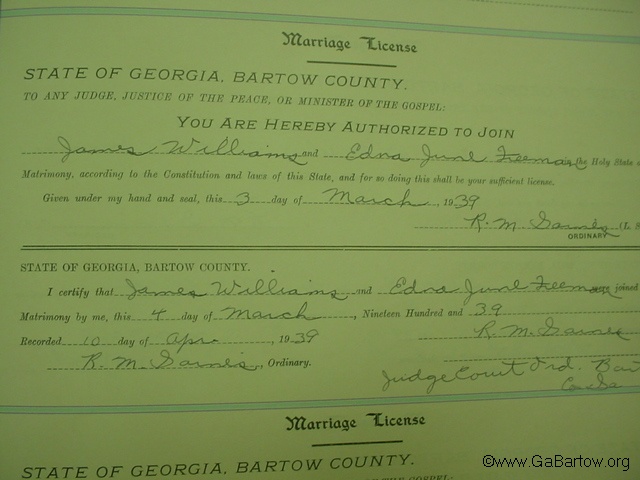 Marriage License
STATE OF GEORGIA, BARTOW COUNTY.
TO ANY JUDGE, JUSTICE OF THE PEACE, OR MINISTER OF THE GOSPEL:
YOU ARE HEREBY AUTHORIZED TO JOIN
James Williams and Edna June Freeman the Holy State
Matrimony, according to the Constitution and laws of this State, and for so doing this shall be your sufficient license.
Given under my hand and seal, this 3 day of March, 1939
R. M. (L. S
ORDINARY
STATE OF GEORGIA, BARTOW COUNTY.
I certify that James Williams and Edna June Freeman joined
Matrimony by me, this 4 day of March, Nineteen Hundred and 39
R. M.
Recorded 10 day of Apr. 1939
R. M., Ordinary.
Judge Court Ord. Bar
Marriage License
STATE OF GEORGIA, BARTOW COUNTY.
©www.GaBartow.org